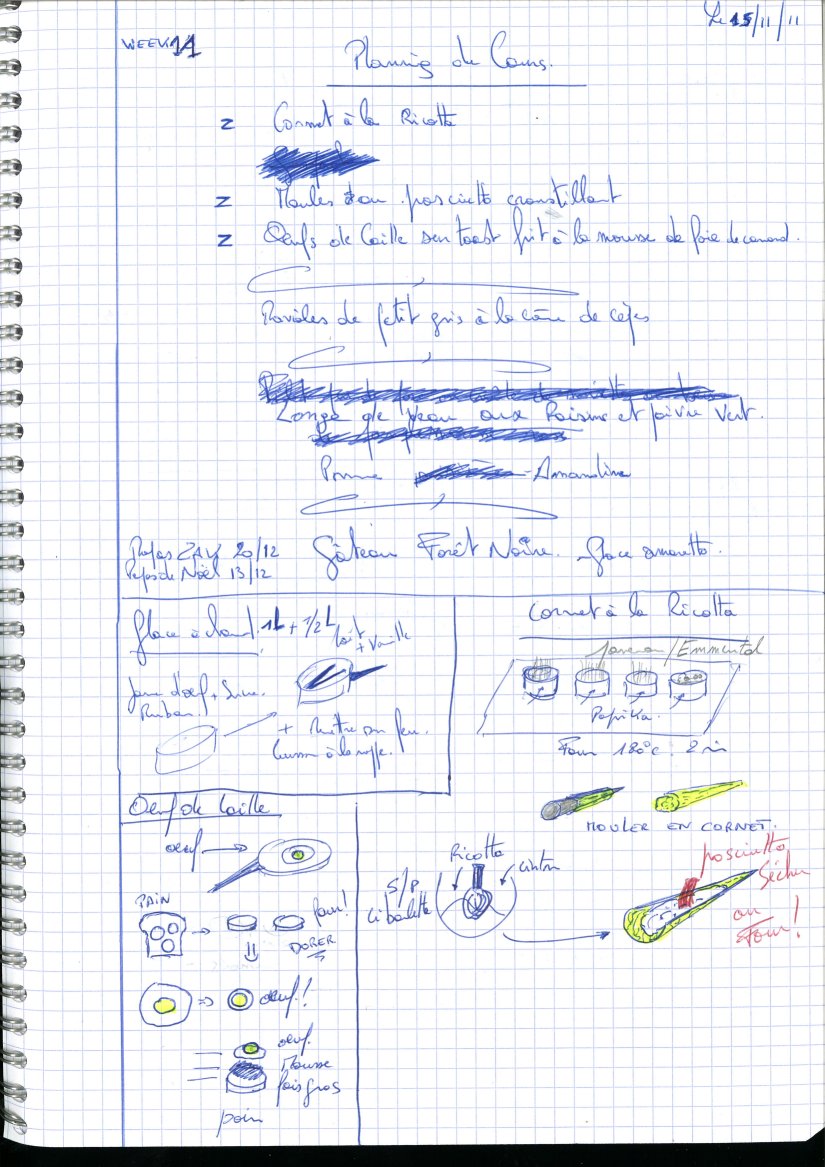 Le 15/11/11
WEEK 11
Planning de Cours.
z Cornet à la Ricotta
z Moules au posciutto croustillant
z Oeufs de Caille sur toast frit à la mousse de foie de canard.
Ravioles de petit gris à la crème de cèpes
Longe de Veau aux Raisins et poivre Vert.
Pomme Amandine
Repas ZAV 20/12
Repas de Noël 13/12
Gâteau Forêt Noire. Glace amaretto.
Glace à chaud 1L + 1/2 L lait
+ Vanille
Jaune d'oeuf + Sucre.
Ruban!
+ Mettre au feu.
Cuisson à la nappe.
Cornet à la Ricotta
Parmesan/Emmental
Paprika.
Four 180°c : 2 min
MOULER EN CORNET.
Ricotta
S/P
Ciboulette
Citron
posciutto
Séché
au
Four!
Oeuf de Caille
oeuf
PAIN
pain!
DORER
oeuf!
oeuf.
Mousse
fois gras
pain